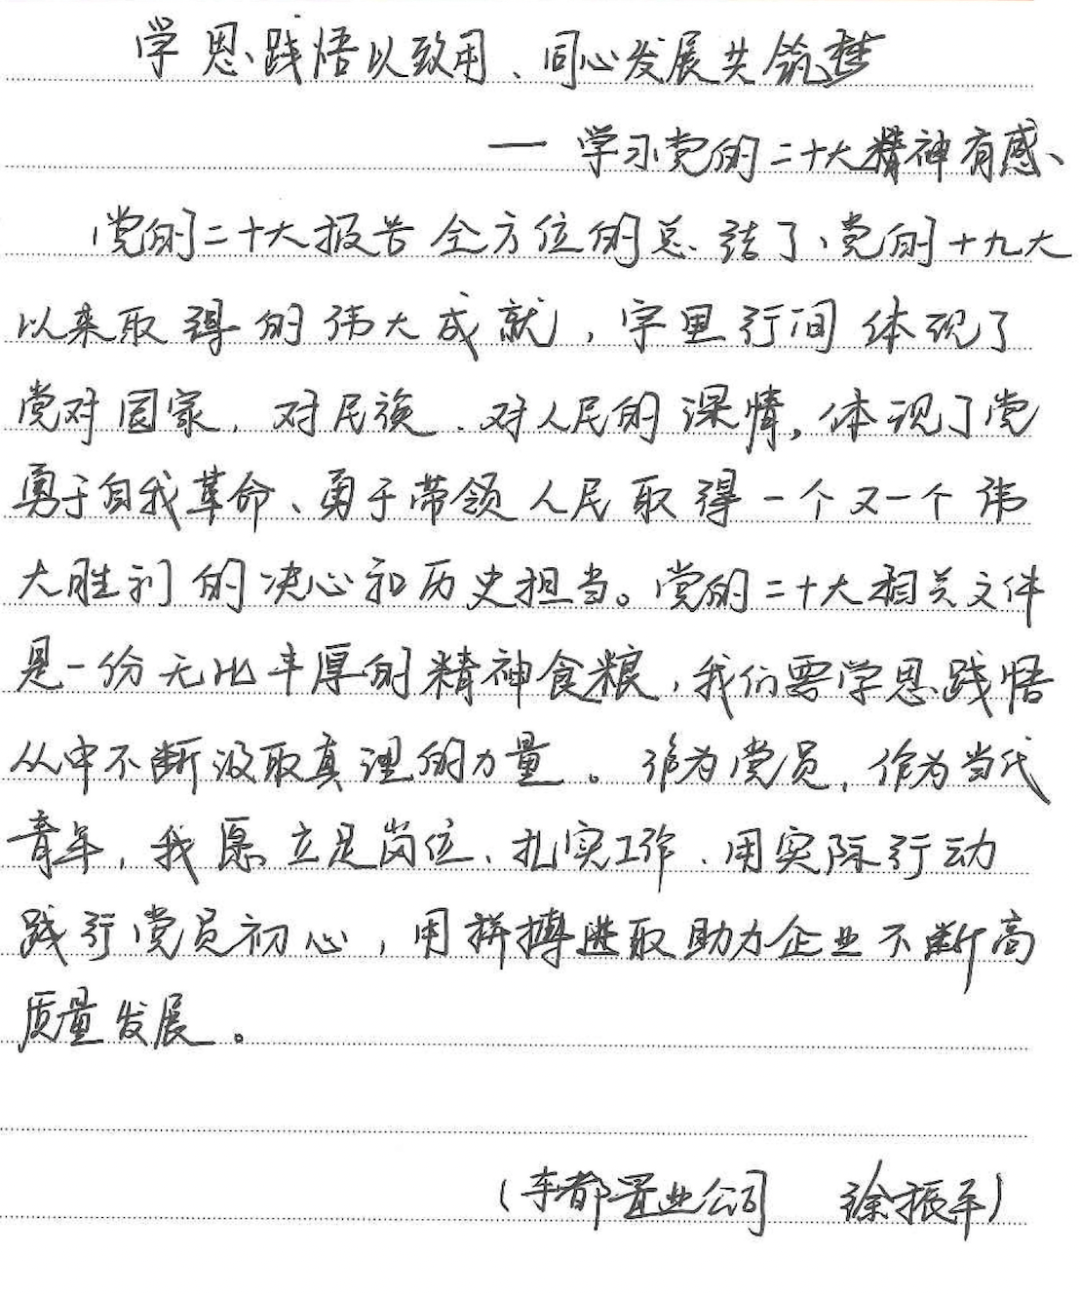 学思践悟以致用、同心发展共筑梦
一学习党的二十大精神有感、
党的二十大报告全方位的总结了、党的十九大
以来取得的伟大成就，字里行间体现了
党对国家、对民族、对人民的深情，体现了党
勇于自我革命、勇于带领人民取得一个又一个伟
大胜利的决心和历史担当。党的二十大相关文件
是一份无比丰厚的精神食粮，我们要学思践悟
从中不断汲取真理的力量。作为党员，作为当代
青年，我愿立足岗位、扎实工作、用实际行动
践行党员初心，用拼搏进取助力企业不断高
质量发展。
（车都置业公司 徐振平）